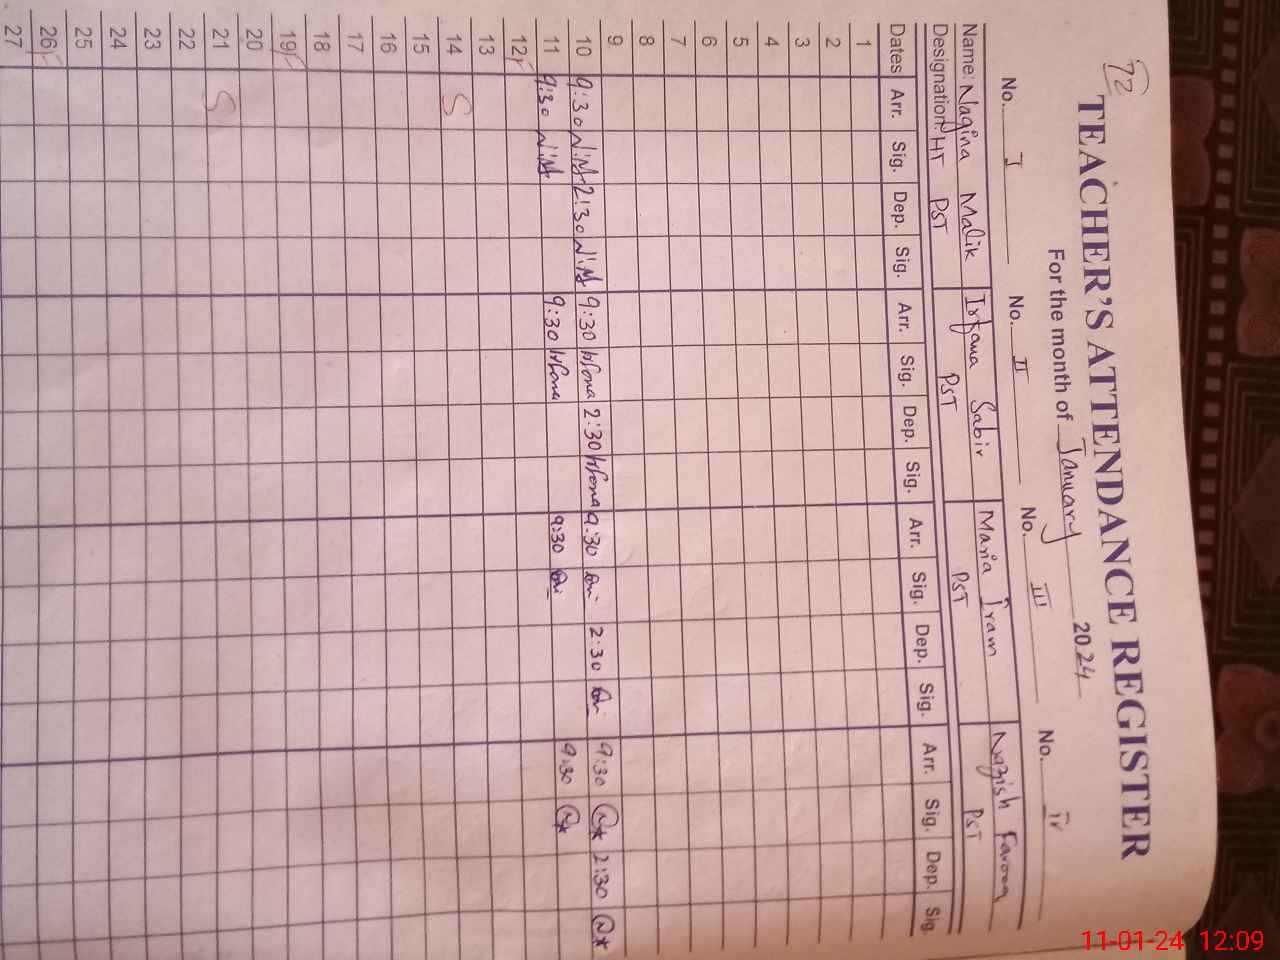 72
TEACHER'S ATTENDANCE REGISTER
For the month of January 2024
No. I No. II No. III No. iv
Name: Nagina Malik Irfana Sabir Maria Iram Nazish Farooq
Designation: HT PST PST PST PST
Dates Arr. Sig. Dep. Sig. Arr. Sig. Dep. Sig. Arr. Sig. Dep. Sig. Arr. Sig. Dep. Sig.
1
2
3
4
5
6
7
8
9
10 9:30 N.M 2:30 N.M 9:30 Irfana 2:30 Irfana 9:30 2:30 9:30 2:30
11 9:30 N.M 9:30 Irfana 9:30 9:30
12 F
13
14 S
15
16
17
18
19 F
20
21 S
22
23
24
25
26 F
27
11-01-24 12:09